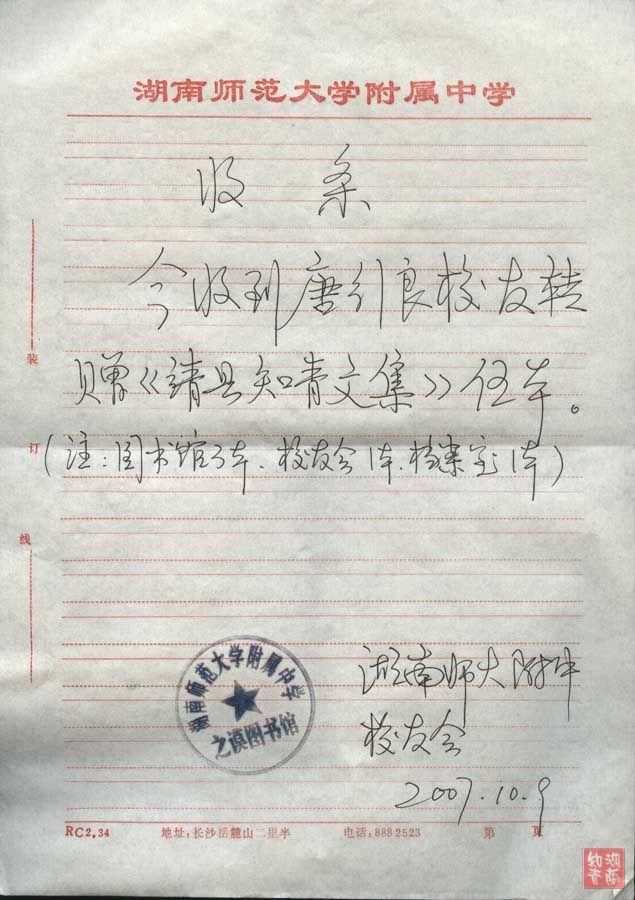 湖南师范大学附属中学
收 条
今收到唐引良校友转
赠《靖县知青文集》伍本。
(注:图书馆3本、校友会1本、档案室1本)
装
订
线
湖南师范大学附属中学
之谟图书馆
湖南师大附中
校友会
2007.10.9
RC2.34 地址:长沙岳麓山二里半 电话:888 2523 第 页
湖南
知青